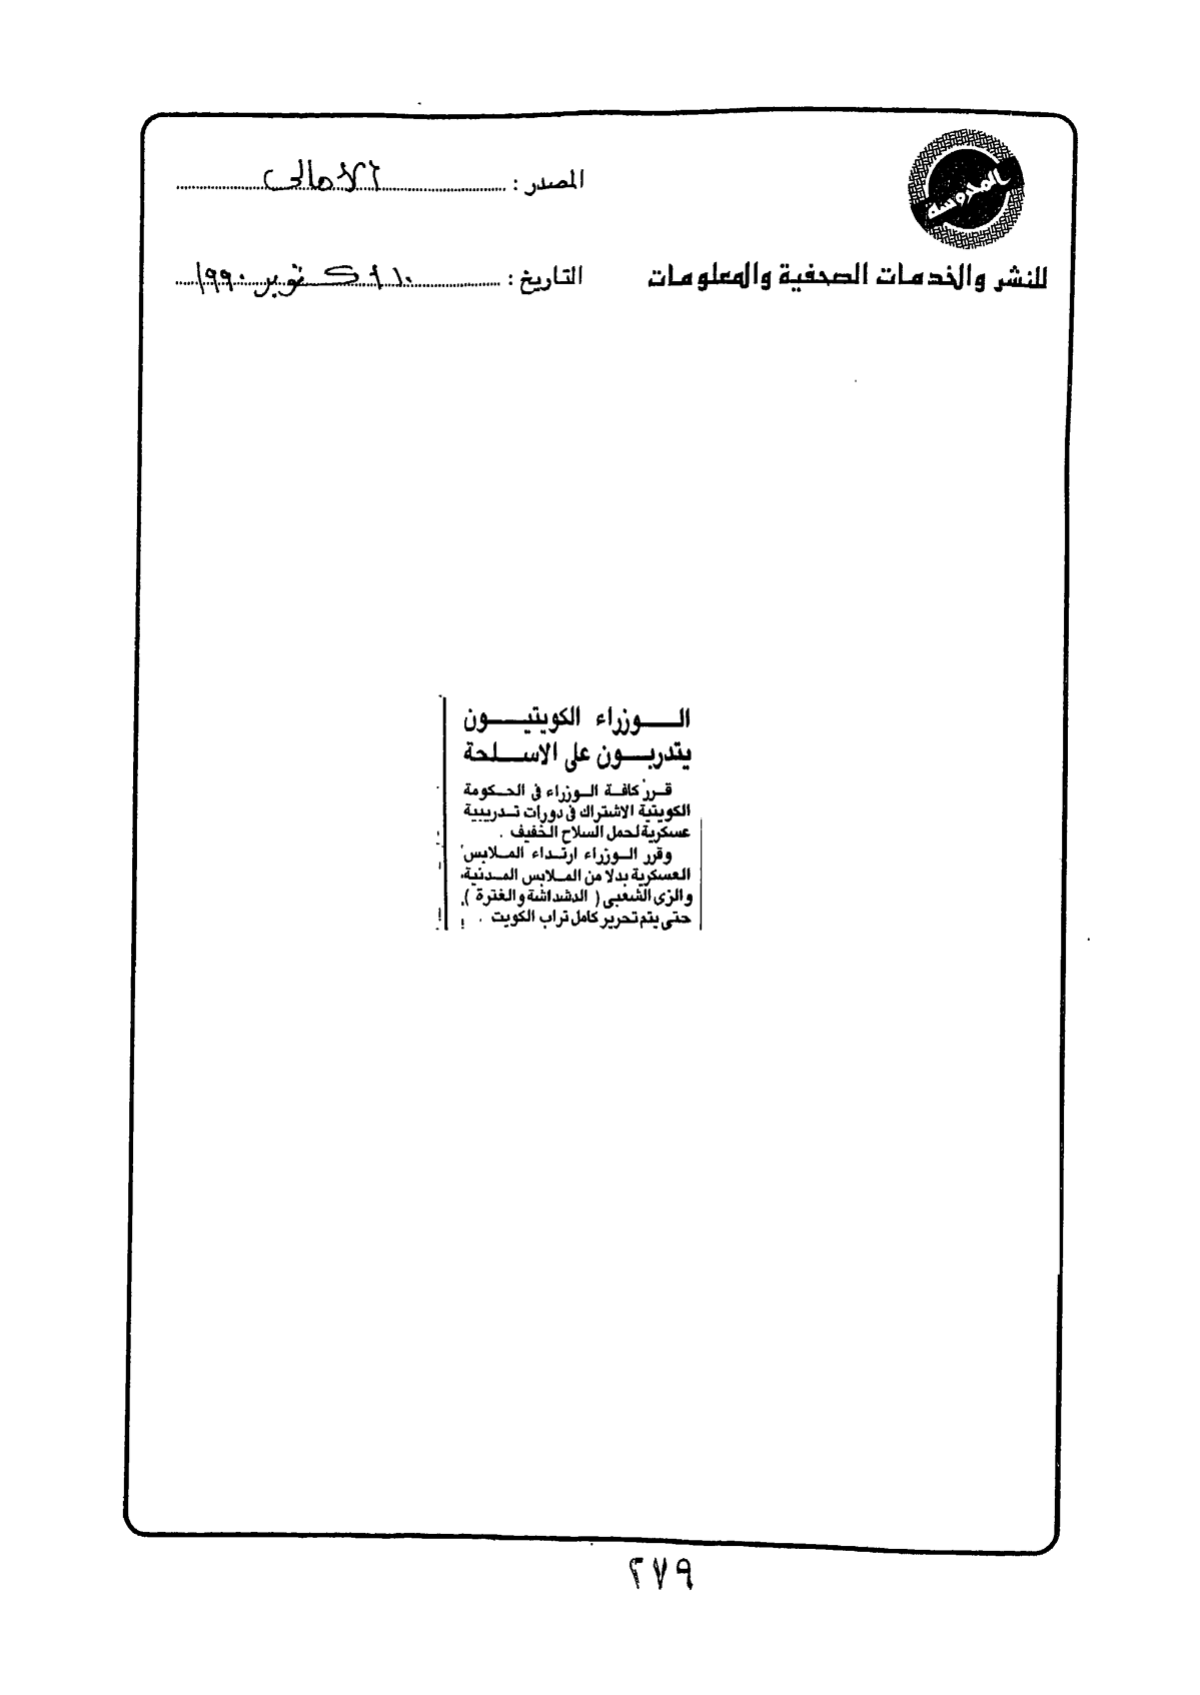 المحروسة
للنشر والخدمات الصحفية والمعلومات
المصدر : الأهالى
التاريخ : ١٠ أكتوبر ١٩٩٠
الـــوزراء الكويتيـــون
يتدربـــون على الاســـلحة
قـرر كافـة الـوزراء فى الحـكومة
الكويتية الاشتراك فى دورات تـدريبية
عسكرية لحمل السلاح الخفيف .
وقرر الـوزراء ارتـداء المـلابس
العسكرية بدلا من المـلابس المـدنية،
والزى الشعبى ( الدشداشة والغترة )،
حتى يتم تحرير كامل تراب الكويت .
٢٧٩